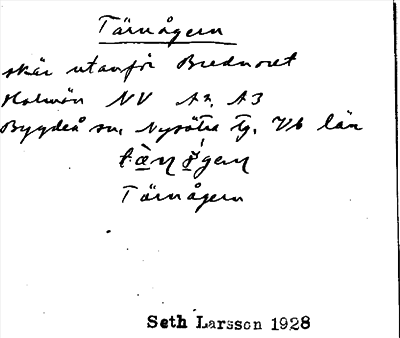 Tärnågern
skär utanför Brednoret
Holmön NV A2, A3
Bygdeå sn, Nysätra tg, Vb län
Tärnågern
Seth Larsson 1928